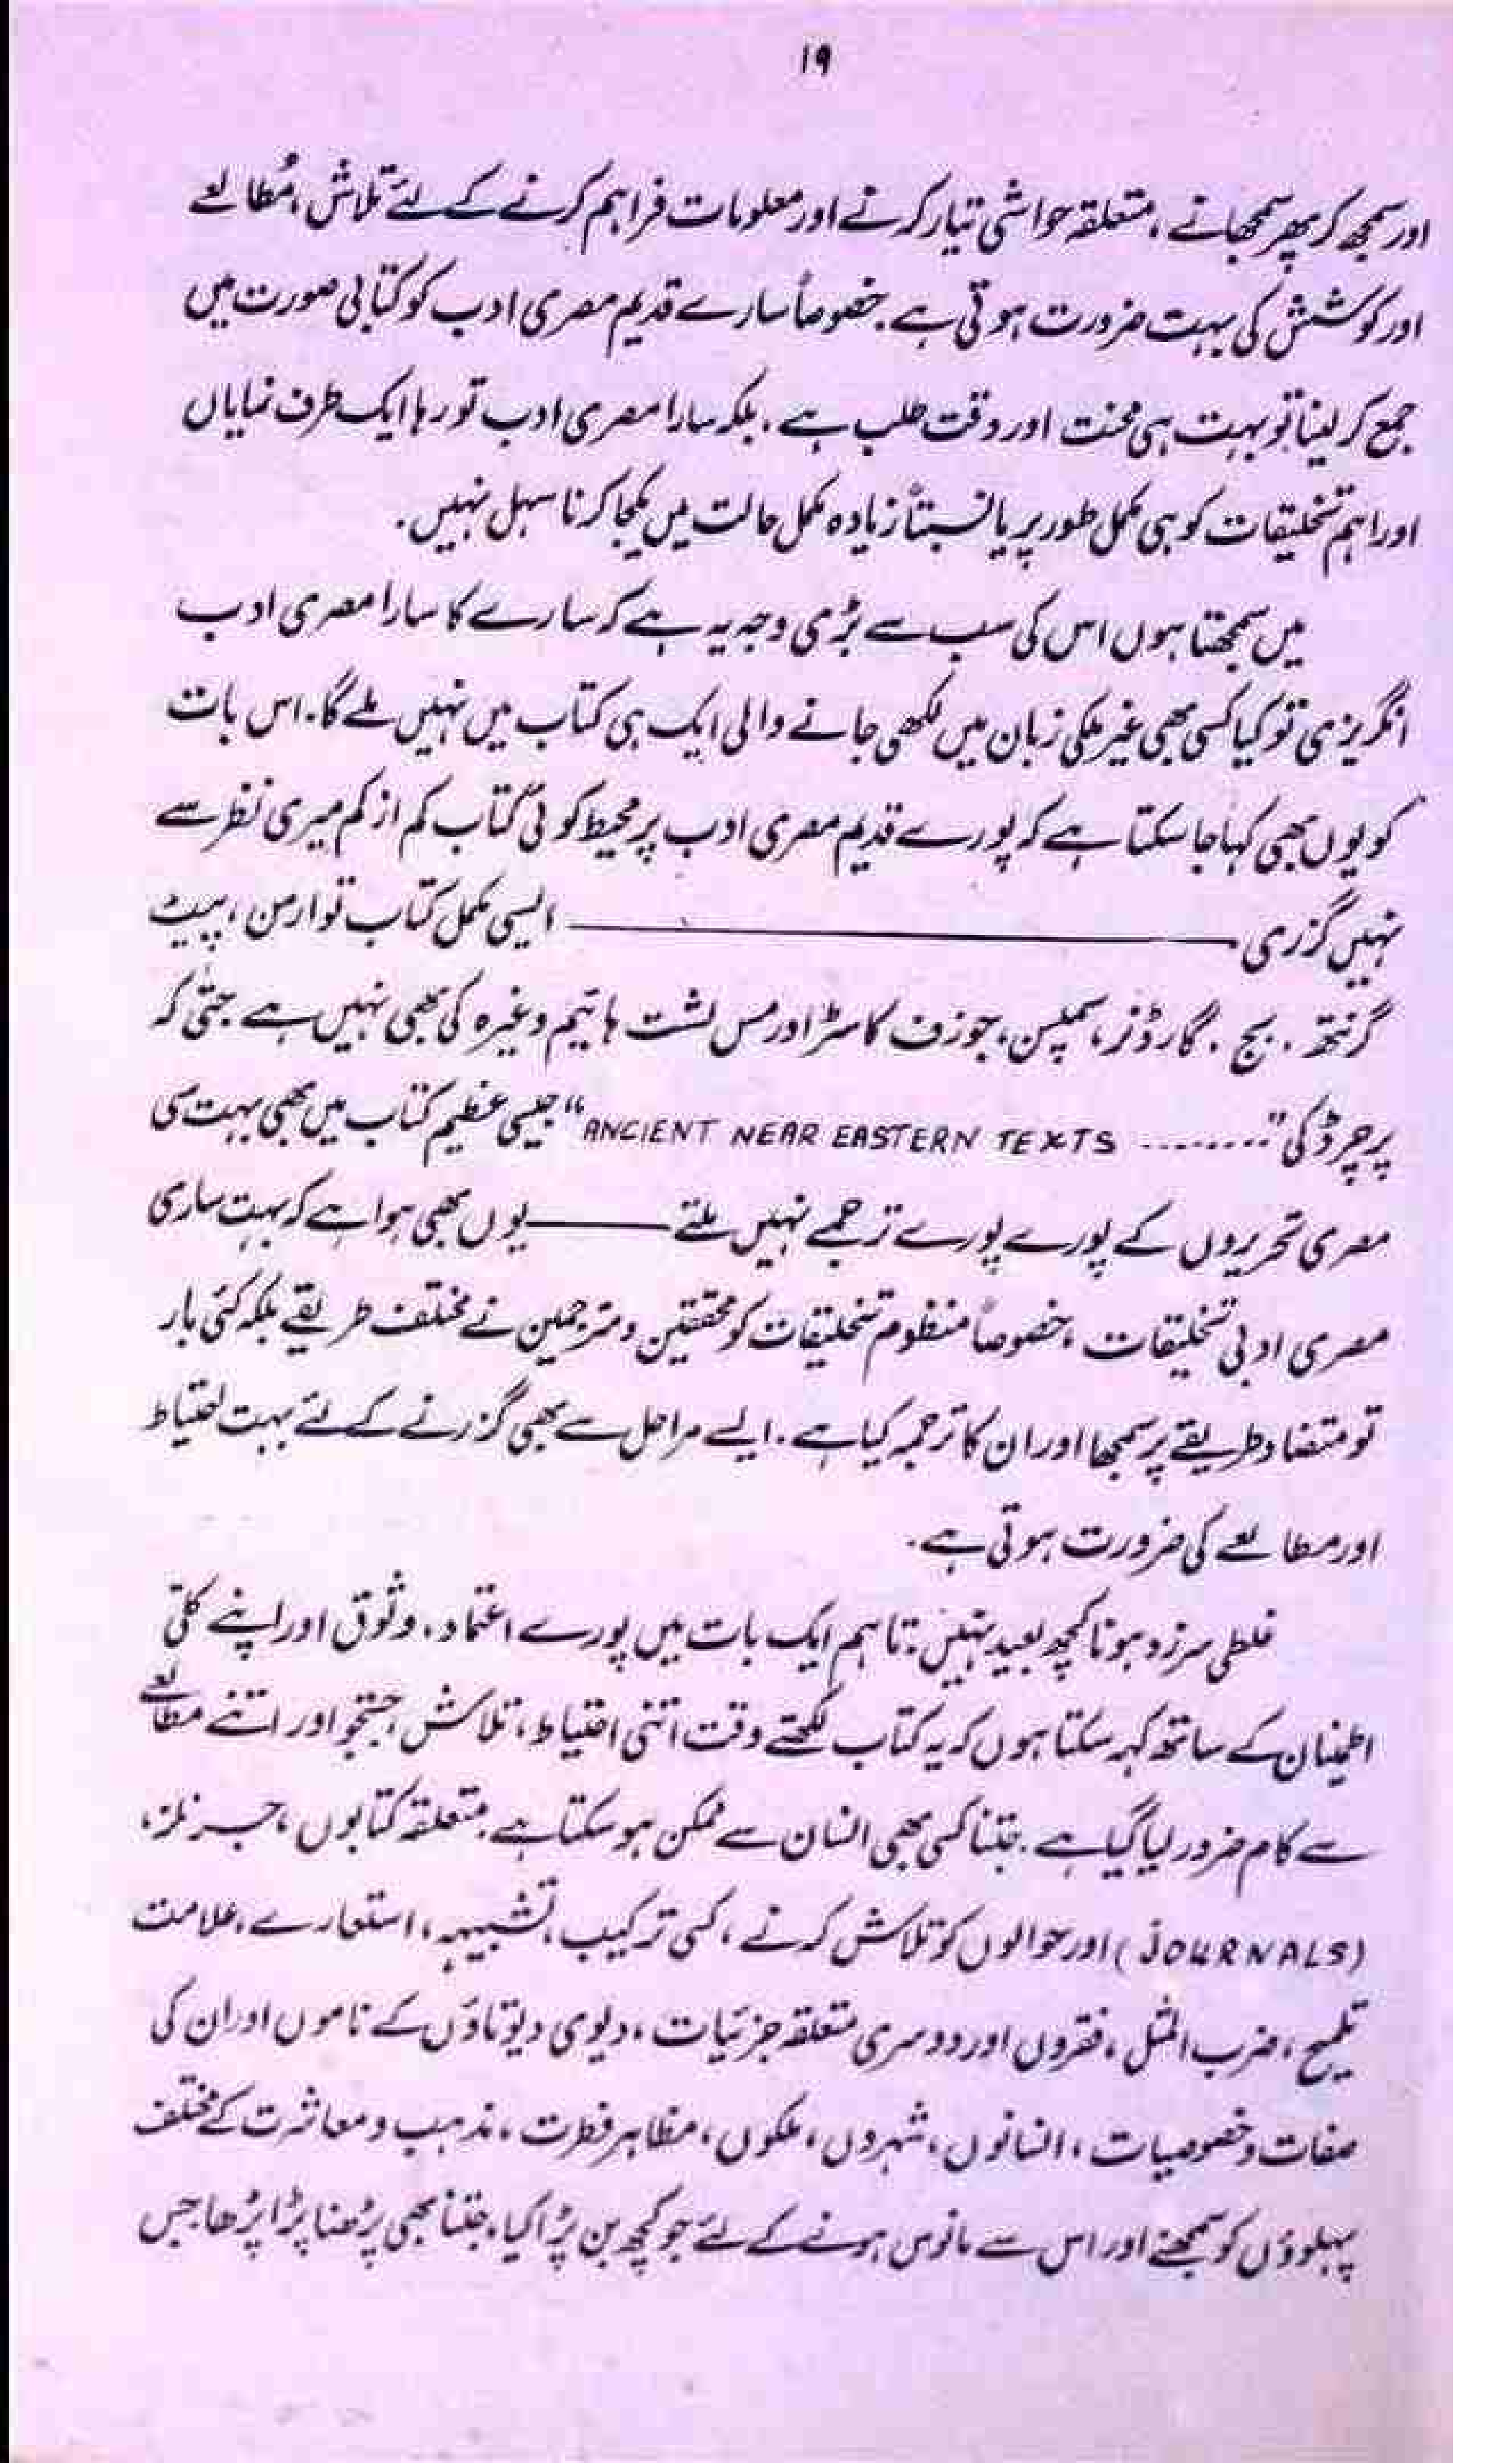 ۱۹
اور سمجھ کر پھر سمجھانے ، متعلقہ حواشی تیار کرنے اور معلومات فراہم کرنے کے لئے تلاش ، مُطالعے
اور کوشش کی بہت ضرورت ہوتی ہے . خصوصاً سارے قدیم مصری ادب کو کتابی صورت میں
جمع کر لینا تو بہت ہی محنت اور وقت طلب ہے . بلکہ سارا مصری ادب تو رہا ایک طرف نمایاں
اور اہم تخلیقات کو ہی مکمل طور پر یا نسبتاً زیادہ مکمل حالت میں یکجا کرنا سہل نہیں .
میں سمجھتا ہوں اس کی سب سے بڑی وجہ یہ ہے کہ سارے کا سارا مصری ادب
انگریزی تو کیا کسی بھی غیر ملکی زبان میں لکھی جانے والی ایک ہی کتاب میں نہیں ملے گا . اس بات
کو یوں بھی کہا جا سکتا ہے کہ پورے قدیم مصری ادب پر محیط کوئی کتاب کم از کم میری نظر سے
نہیں گزری ——————— ایسی مکمل کتاب تو ارمن ، پیٹ
گرنتھ . بج . گارڈنر ، سمپسن ، جوزف کاسٹر اور مس لشت ہائیم وغیرہ کی بھی نہیں ہے حتیٰ کہ
پرچرڈ کی "........ ANCIENT NEAR EASTERN TEXTS" جیسی عظیم کتاب میں بھی بہت سی
مصری تحریروں کے پورے پورے ترجمے نہیں ملتے ——— یوں بھی ہوا ہے کہ بہت ساری
مصری ادبی تخلیقات ، خصوصاً منظوم تخلیقات کو محققین و مترجمین نے مختلف طریقے بلکہ کئی بار
تو متضاد طریقے پر سمجھا اور ان کا ترجمہ کیا ہے . ایسے مراحل سے بھی گزرنے کے لئے بہت احتیاط
اور مطالعے کی ضرورت ہوتی ہے .
غلطی سرزد ہونا کچھ بعید نہیں . تاہم ایک بات میں پورے اعتماد ، وثوق اور اپنے کلی
اطمینان کے ساتھ کہہ سکتا ہوں کہ یہ کتاب لکھتے وقت اتنی احتیاط ، تلاش ، جستجو اور اتنے مطالعے
سے کام ضرور لیا گیا ہے . جتنا کسی بھی انسان سے ممکن ہو سکتا ہے . متعلقہ کتابوں ، جرنلز ،
(JOURNALS) اور حوالوں کو تلاش کرنے ، کسی ترکیب ، تشبیہہ ، استعارے ، علامت
تلمیح ، ضرب المثل ، فقروں اور دوسری متعلقہ جزئیات ، دیوی دیوتاؤں کے ناموں اور ان کی
صفات و خصوصیات ، انسانوں ، شہروں ، ملکوں ، مظاہر فطرت ، مذہب و معاشرت کے مختلف
پہلوؤں کو سمجھنے اور اس سے مانوس ہونے کے لئے جو کچھ بن پڑا کیا ، جتنا بھی پڑھنا پڑا پڑھا ، جس